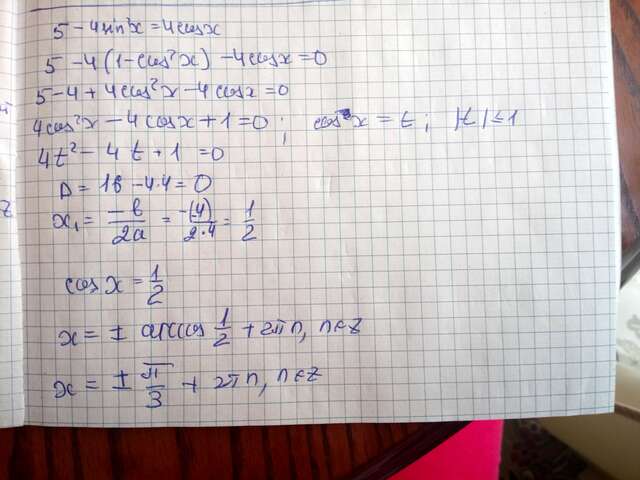 5 - 4sin²x = 4cosx
5 - 4(1 - cos²x) - 4cosx = 0
5 - 4 + 4cos²x - 4cosx = 0
4cos²x - 4cosx + 1 = 0; cosx = t; |t| ≤ 1
4t² - 4t + 1 = 0
D = 16 - 4·4 = 0
x₁ = -b/2a = -(-4)/2·4 = 1/2
cosx = 1/2
x = ± arccos 1/2 + 2πn, n∈z
x = ± π/3 + 2πn, n∈z